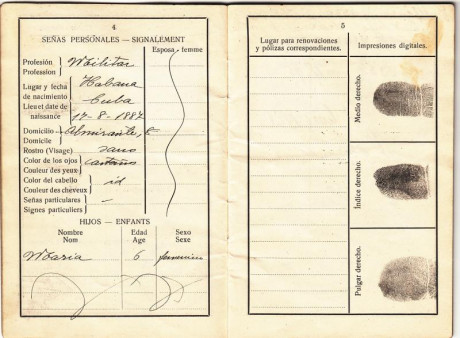 4
SEÑAS PERSONALES — SIGNALEMENT
Esposa - femme
Profesión
Profession
Militar
Lugar y fecha
de nacimiento
Lieu et date de
naissance
Habana
Cuba
17-8-1887
Domicilio
Domicile
Almirante,
Rostro (Visage)
sano
Color de los ojos
Couleur des yeux
castaños
Color del cabello
Couleur des cheveux
id
Señas particulares
Signes particuliers
HIJOS — ENFANTS
Nombre Edad Sexo
Nom Age Sexe
Maria 6 femenino
5
Lugar para renovaciones
y pólizas correspondientes.
Impresiones digitales.
Medio derecho.
Índice derecho.
Pulgar derecho.